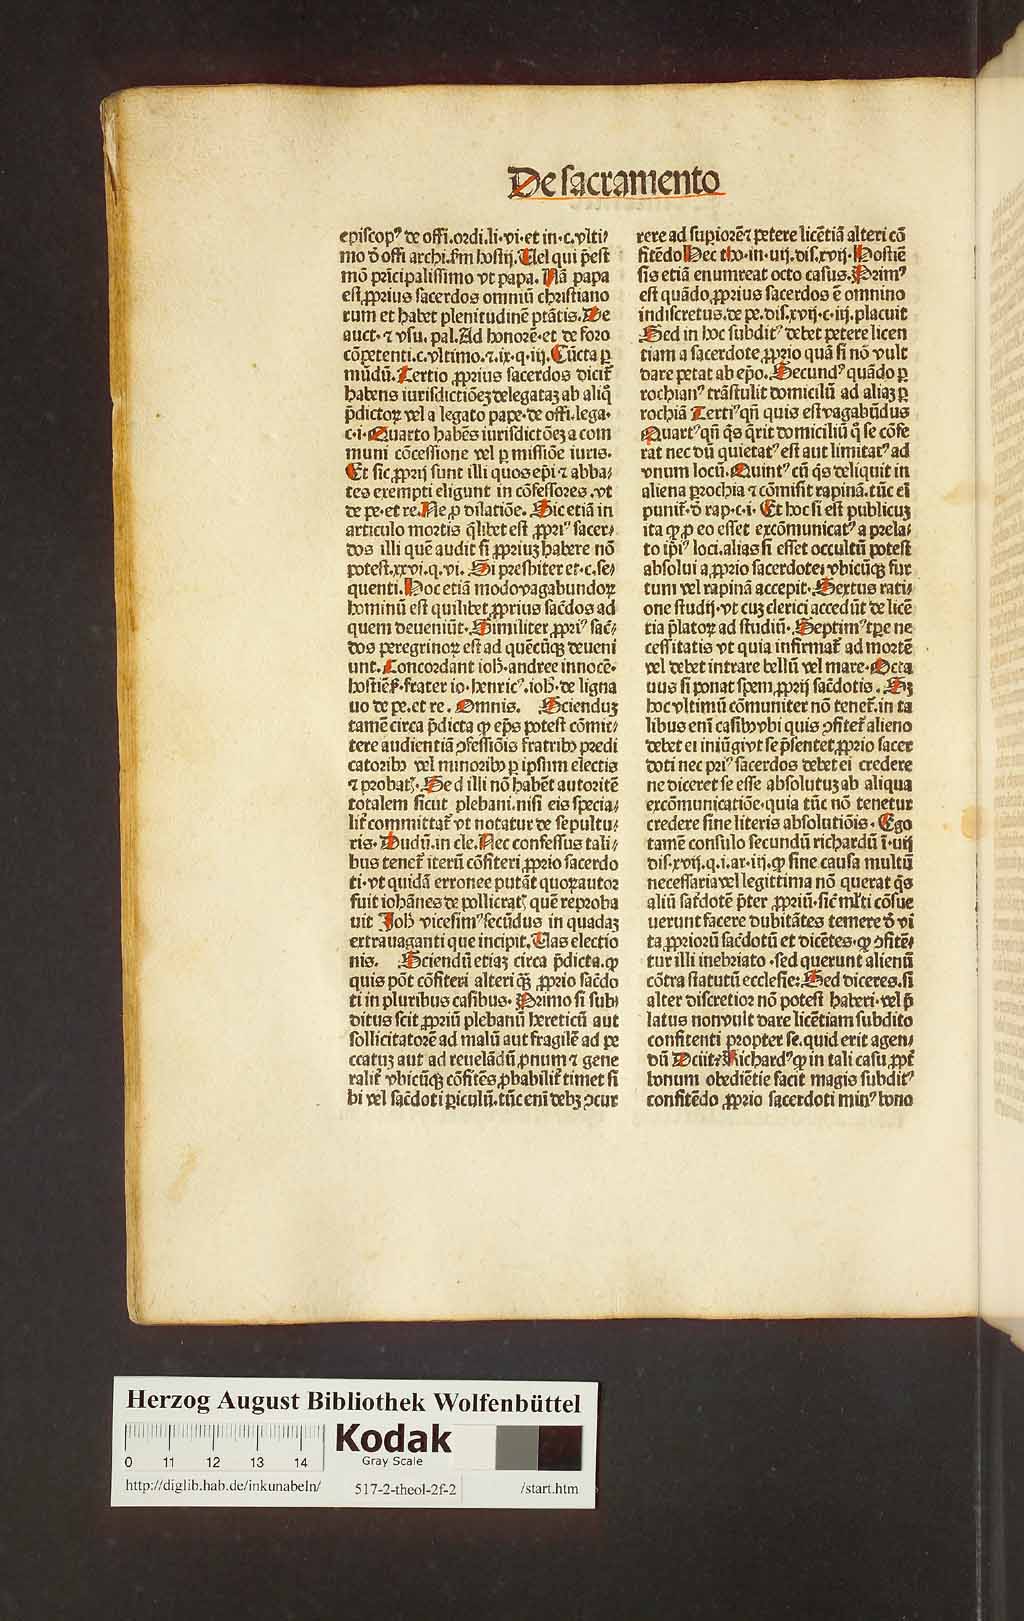 De sacramento
episcopꝰ de offi.ordi.li.vi.et in.c.vlti⸗
mo ð offi archi.fm hostij.Uel qui p̄est
mō prīcipalissimo vt papa. Nā papa
est ꝓprius sacerdos omniū christiano
rum et habet plenitudinē ptātis.De
auct.⁊ vsu. pal.Ad honorē.et de foro
cōpetenti.c.vltimo.⁊.ix.q.iij.Cūcta ꝑ
mūdū.Tertio ꝓprius sacerdos dicit̄
habens iurisdictiōeꝫ delegataꝫ ab aliq̄
p̄dictoꝝ vel a legato pape.de offi.lega.
c.i.Quarto habēs iurisdictōeꝫ a com
muni cōcessione vel ꝑmissiōe iuris.
Et sic ꝓprij sunt illi quos ep̄i ⁊ abba⸗
tes exempti eligunt in cōfessores.vt
de pe.et re.Ne ꝓ dilatiōe. Sic etiā in
articulo mortis q̄libet est ꝓpriꝰ sacer⸗
dos illi quē audit si ꝓpriuꝫ habere nō
potest.xxvi.q.vi. Si presbiter et.c.se⸗
quenti.Hoc etiā modo vagabundoꝝ
hominū est quilibet ꝓprius sac̄dos ad
quem deueniūt.Similiter ꝓpriꝰ sac̄⸗
dos peregrinoꝝ est ad quēcūqꝫ deueni
unt.Concordant ioh̄.andree innocē.
hostieñ.frater io.henricꝰ.ioh̄.de ligna
no de pe.et re. Omnis. Scienduꝫ
tamē circa p̄dicta ꝙ ep̄s potest cōmit⸗
tere audientiā ꝯfessiōis fratribꝫ predi
catoribꝫ vel minoribꝫ ꝑ ipsum electis
⁊ probatꝭ.Sed illi nō habēt autoritē
totalem sicut plebani.nisi eis specia⸗
lit̄ committat̄ vt notatur de sepultu⸗
ris.Dudū.in cle.Nec confessus tali⸗
bus tenet̄ iterū cōfiteri ꝓprio sacerdo
ti.vt quidā erronee putāt quoꝝ autor
fuit iohānes de pollicratꝭ quē reproba
uit Joh̄ vicesimꝰ secūdus in quadaꝫ
extrauaganti que incipit.Uas electio
nis. Sciendū etiaꝫ circa p̄dicta.ꝙ
quis pōt cōfiteri alteri qꝫ̄ ꝓprio sac̄do
ti in pluribus casibus. Primo si sub⸗
ditus scit ꝓpriū plebanū hereticū aut
sollicitatorē ad malū aut fragilē ad pe
ccatuꝫ aut ad reuelādū pronum ⁊ gene
ralit̄ vbicūqꝫ cōfitēs ꝓbabilit̄ timet si
bi vel sac̄doti ꝑiculū.tūc enī debꝫ ꝯcur
rere ad suꝑiorē ⁊ petere licētiā alteri cō
fitēdo Hec tho.in.iiij.dis.xvij.Hostiē
sis etiā enumreat octo casus.Primꝰ
est quādo ꝓprius sacerdos ē omnino
indiscretus.de pe.dis.xvij.c.iij.placuit
Sed in hoc subditꝰ debet petere licen
tiam a sacerdote ꝓprio quā si nō vult
dare petat ab ep̄o. Secundꝰ quādo ꝑ
rochianꝰ trāstulit domicilū ad aliaꝫ ꝑ
rochiā Tertiꝰ qn̄ quis est vagabūdus
Quartꝰ qn̄ q̄s q̄rit domiciliū q̄ se cōfe
rat nec dū quietatꝰ est aut limitatꝰ ad
vnum locū.Quintꝰ cū q̄s deliquit in
aliena ꝑrochia ⁊ cōmisit rapinā.tūc eī
punit̄.ð rap.c.i. Et hoc si est publicuꝫ
ita ꝙ ꝓ eo esset excōmunicatꝰ a prela⸗
to ip̄iꝰ loci.alias si esset occultū potest
absolui a ꝓprio sacerdote⸗ vbicūqꝫ fur
tum vel rapinā accepit.Sextus rati⸗
one studij.vt cuꝫ clerici accedūt de licē
tia p̄latoꝝ ad studiū.Septimꝰ tꝑe ne
cessitatis vt quia infirmat̄ ad mortē
vel debet intrare bellū vel mare.Octa
uus si ponat spem ꝓprij sac̄dotis. Sꝫ
hoc vltimū cōmuniter nō tenet̄.in ta
libus enī casibꝫ vbi quis ꝯfitet̄ alieno
debet ei iniūgi vt se p̄sentet ꝓprio sacer
doti nec priꝰ sacerdos debet ei credere
ne diceret se esse absolutuꝫ ab aliqua
excōmunicatiōe.quia tūc nō tenetur
credere sine literis absolutiōis. Ego
tamē consulo secundū richardū ī.iiij
dis.xvij.q.i.ar.iij.ꝙ sine causa multū
necessaria vel legittima nō querat q̄s
aliū sac̄dotē p̄ter ꝓpriū.sic̄ ml̄ti cōsue
uerunt facere dubitātes temere ð vi
ta ꝓprioꝝ sac̄dotū et dicētes.ꝙ ꝯfitē⸗
tur illi inebriato.sed querunt alienū
cōtra statutū ecclesie: Sed diceres.si
alter discretior nō potest haberi.vel p̄
latus non vult dare licētiam subdito
confitenti propter se.quid erit agen⸗
dū Dciit: Richardꝰ ꝙ in tali casu ꝓpt̄
bonum obediētie facit magis subditꝰ
confitēdo ꝓprio sacerdoti minꝰ bono
Herzog August Bibliothek Wolfenbüttel
0 11 12 13 14
Kodak
Gray Scale
http://diglib.hab.de/inkunabeln/ 517-2-theol-2f-2 /start.htm